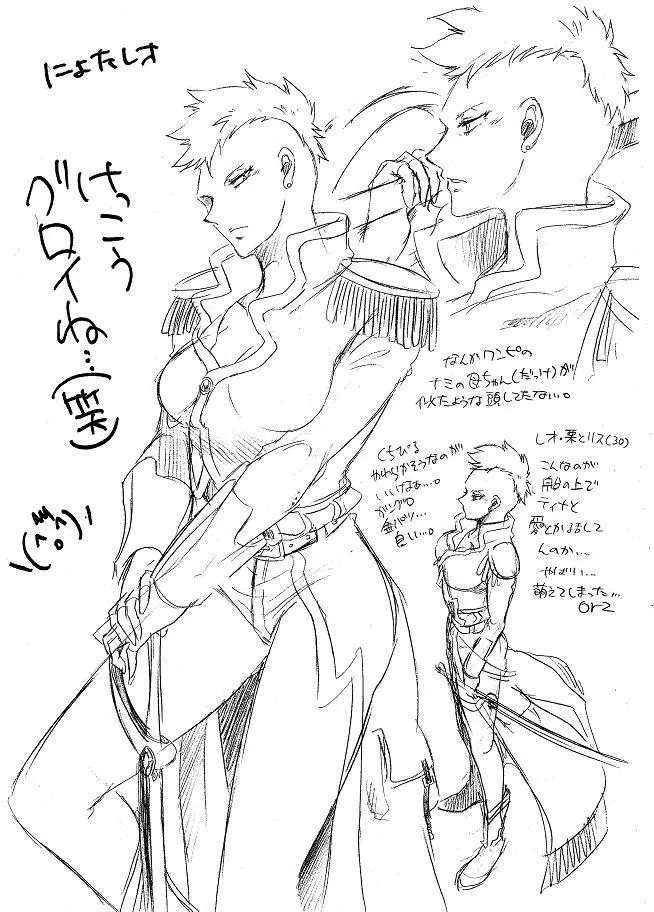 にょたレオ
けっこう
グロイね…(笑)
なんかワンピの
ナミの母ちゃん(だっけ)が
似たような頭してたな…。
くちびる
やわらかそうなのが
いいけなぁ…。
金パツ…
レオ・栗とリス(30)
こんなのが
船の上で
ティナと
愛とか話して
んのか…
やばい…
萌えてしまった…
orz